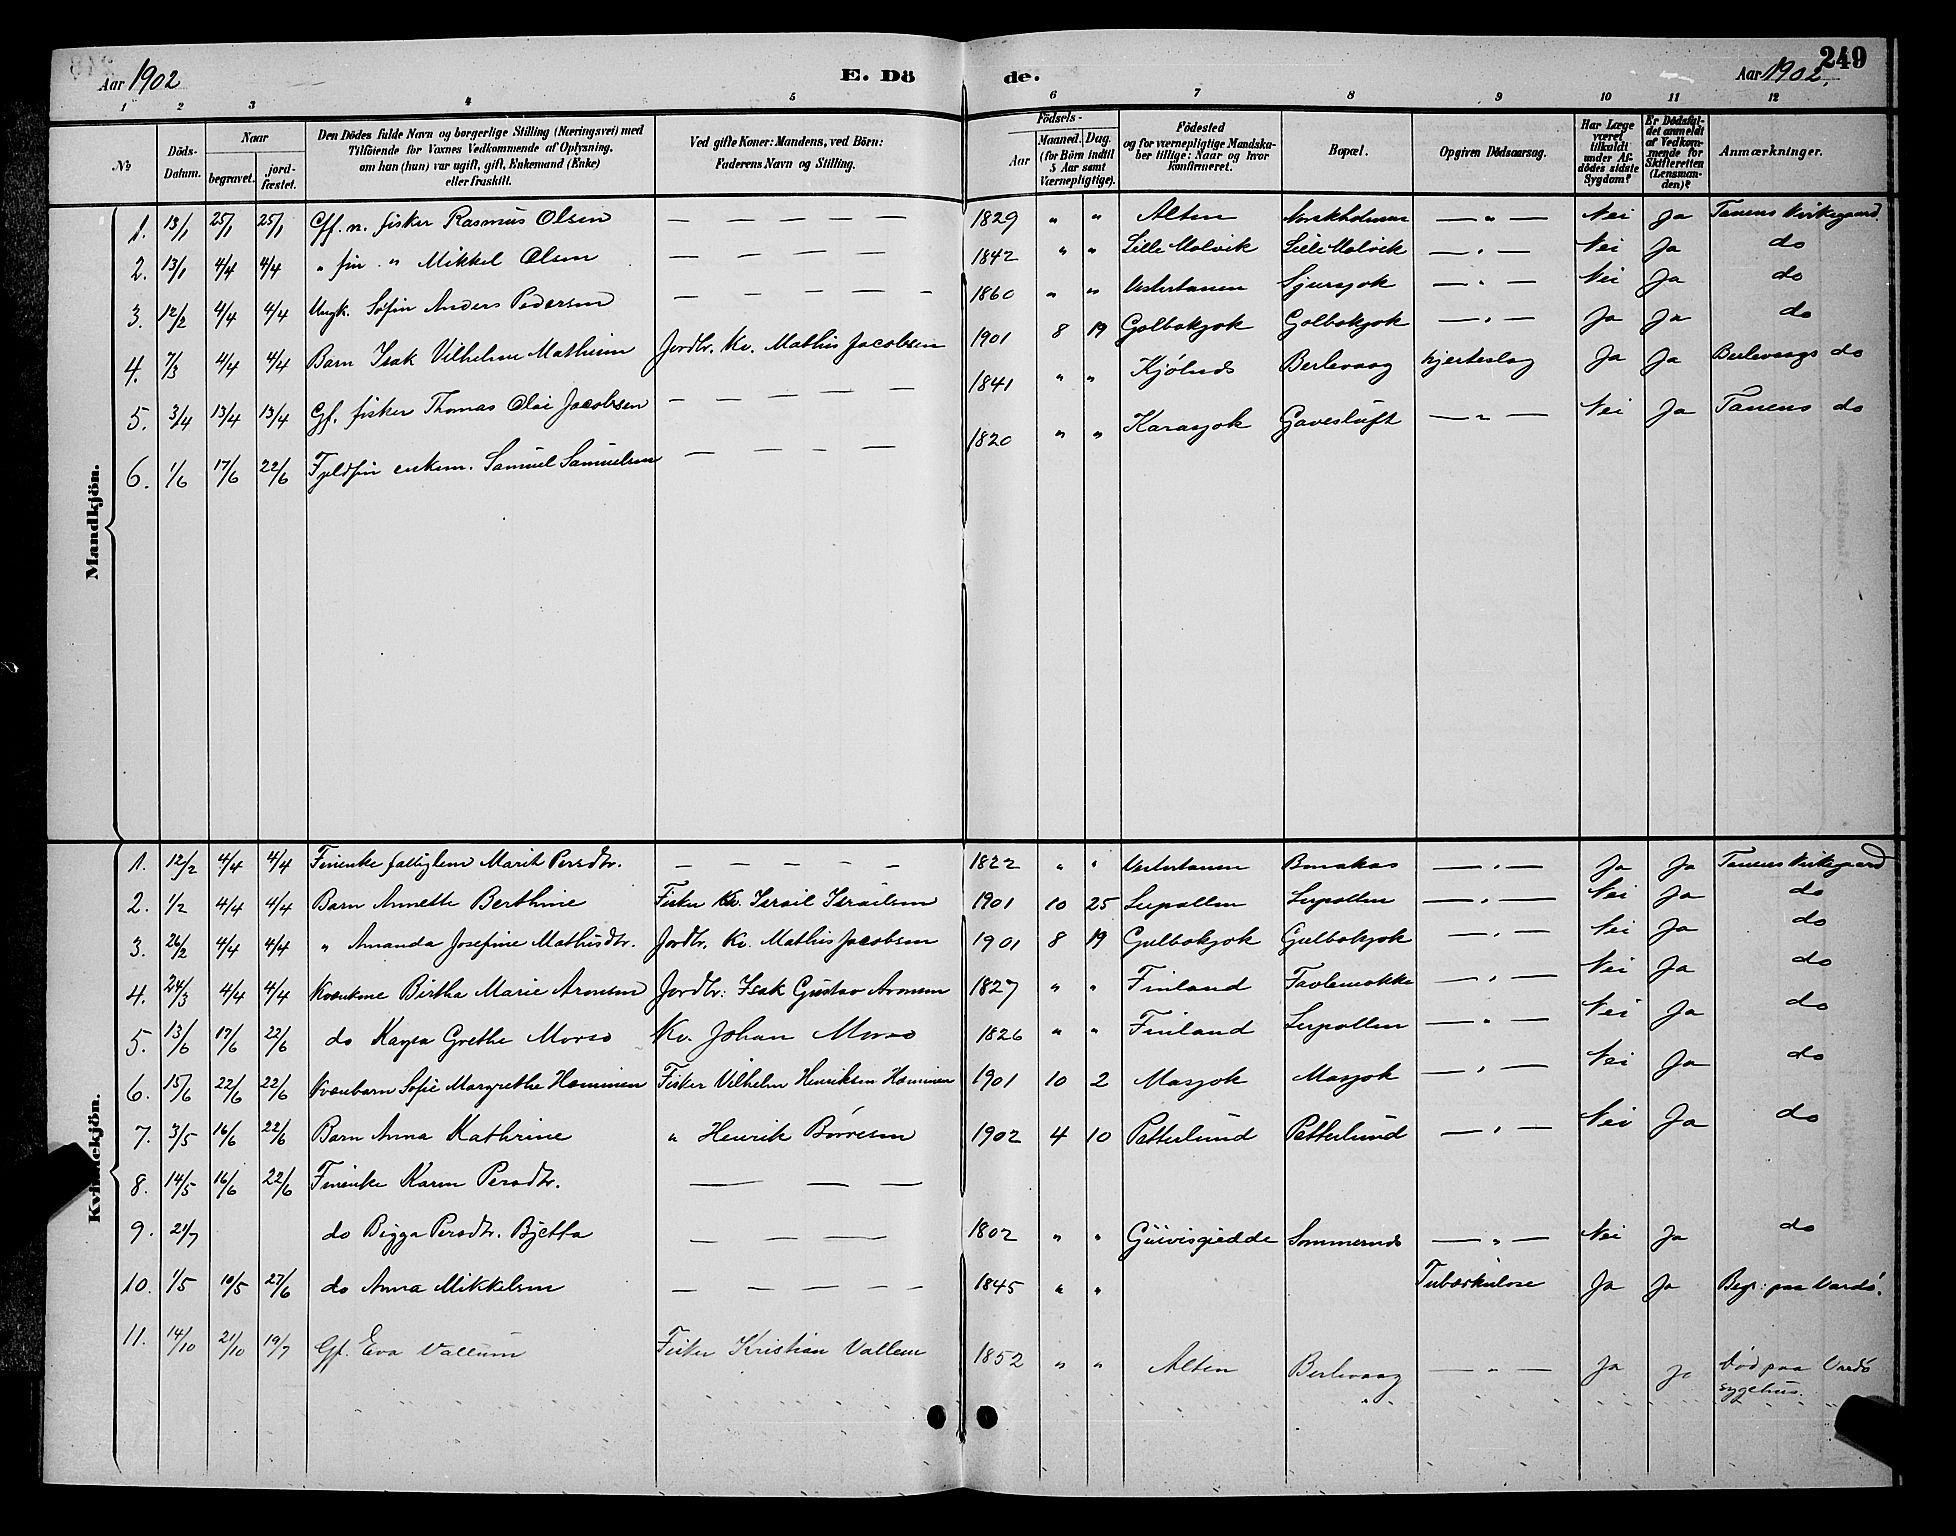 249
Aar 1902 E. Döde. Aar 1902.
1 2 3 4 5 6 7 8 9 10 11 12
No Döds-Datum. Naar begravet. jordfæstet. Den Dödes fulde Navn og borgerlige Stilling (Næringsvei) med Tilföiende for Voxnes Vedkommende af Oplysning, om han (hun) var ugift, gift, Enkemand (Enke) eller fraskilt. Ved gifte Koner: Mandens, ved Börn: Faderens Navn og Stilling. Födsels- Aar Maaned. Dag. (for Börn indtil 5 Aar samt Værnepligtige). Födested og for værnepligtige Mandskaber tillige: Naar og hvor konfirmeret. Bopæl. Opgiven Dödsaarsag. Har Læge været tilkaldt under Afdödes sidste Sygdom? Er Dödsfaldet anmeldt af Vedkommende for Skifteretten (Lensmanden)? Anmærkninger.
Mandkjön.
1. 13/1 25/1 25/1 Gff. n. fisker Rasmus Olsen — — — — — 1829 " " Alten — " — Nei Ja Tanens Kirkegaard
2. 13/1 4/4 4/4 " fin " Mikkel Olsen — — — — — 1842 " " Lille Molvik Lille Molvik — " — Nei Ja do
3. 12/2 4/4 4/4 Ungk. Søfin Anders Pedersen — — — — — — 1860 " " Vestertanen — " — Nei Ja do
4. 7/3 4/4 4/4 Barn Isak Vilhelm Jordbr. Kv. Mathis Jacobsen 1901 8 19 Golbokjok Golbokjok — " — Ja Ja do
5. 3/4 13/4 13/4 Gf. fisker Thomas Olai Jacobsen — — — — 1841 " " Kjølnes Berlevaag hjerteslag Ja Ja Berlevaags do
6. 1/6 17/6 22/6 Fjeldfin enkem. Samuel Samuelsen — — — — 1820 " " Karasjok Gavesluft — " — Nei Ja Tanens do
Kvindekjön.
1. 12/2 4/4 4/4 Finenke fattiglem Marit Persdtr. — — — — — 1822 " " Vestertanen — " — Ja Ja Tanens Kirkegaard
2. 1/2 4/4 4/4 Barn Annette Berthine Fisker Kv. Israil Israilsen 1901 10 25 Leipollen Leipollen — " — Nei Ja do
3. 26/2 4/4 4/4 " Amanda Josefine Mathisdtr. Jordbr. Kv. Mathis Jacobsen 1901 8 19 Gulbokjok Gulbokjok — " — Nei Ja do
4. 24/3 4/4 4/4 Kvænkone Birtha Marie Aronsen Jordbr: Isak Gustav Aronsen 1827 " " Finland — " — Nei Ja do
5. 13/6 17/6 22/6 do Kaysa Grethe Morso Kv. Johan Morso 1826 " " Finland Leipollen — " — Nei Ja do
6. 15/6 22/6 22/6 Kvænbarn Sofie Margrethe Henninen Fisker Vilhelm Henriksen Henninen 1901 10 2 Masjok Masjok — " — Nei Ja do
7. 3/5 16/6 22/6 Barn Anna Kathrine " Henrik Børresen 1902 4 10 Petterlund Petterlund — " — Nei Ja do
8. 14/5 16/6 22/6 Finenke Karen Persdtr. — — —
9. 21/7 do Bigga Persdtr. Bjetta — — — 1802 " " Sommernes — " — Nei Ja do
10. 1/5 10/5 27/6 do Anna Mikkelsen — — — — — 1845 " " Tuberkulose Ja Ja Begr: paa Vardö.
11. 14/10 21/10 19/7 Gf. Eva Vallum Fisker Kristian Vallem 1852 " " Alten Berlevaag — " — Ja Ja Död paa Vardö
sygehus.